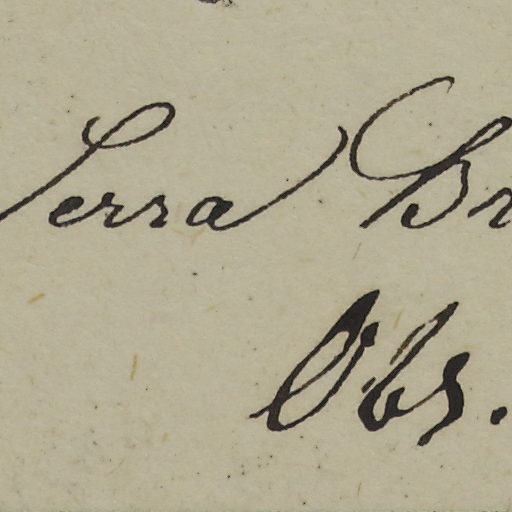 Serra Br
Obs.